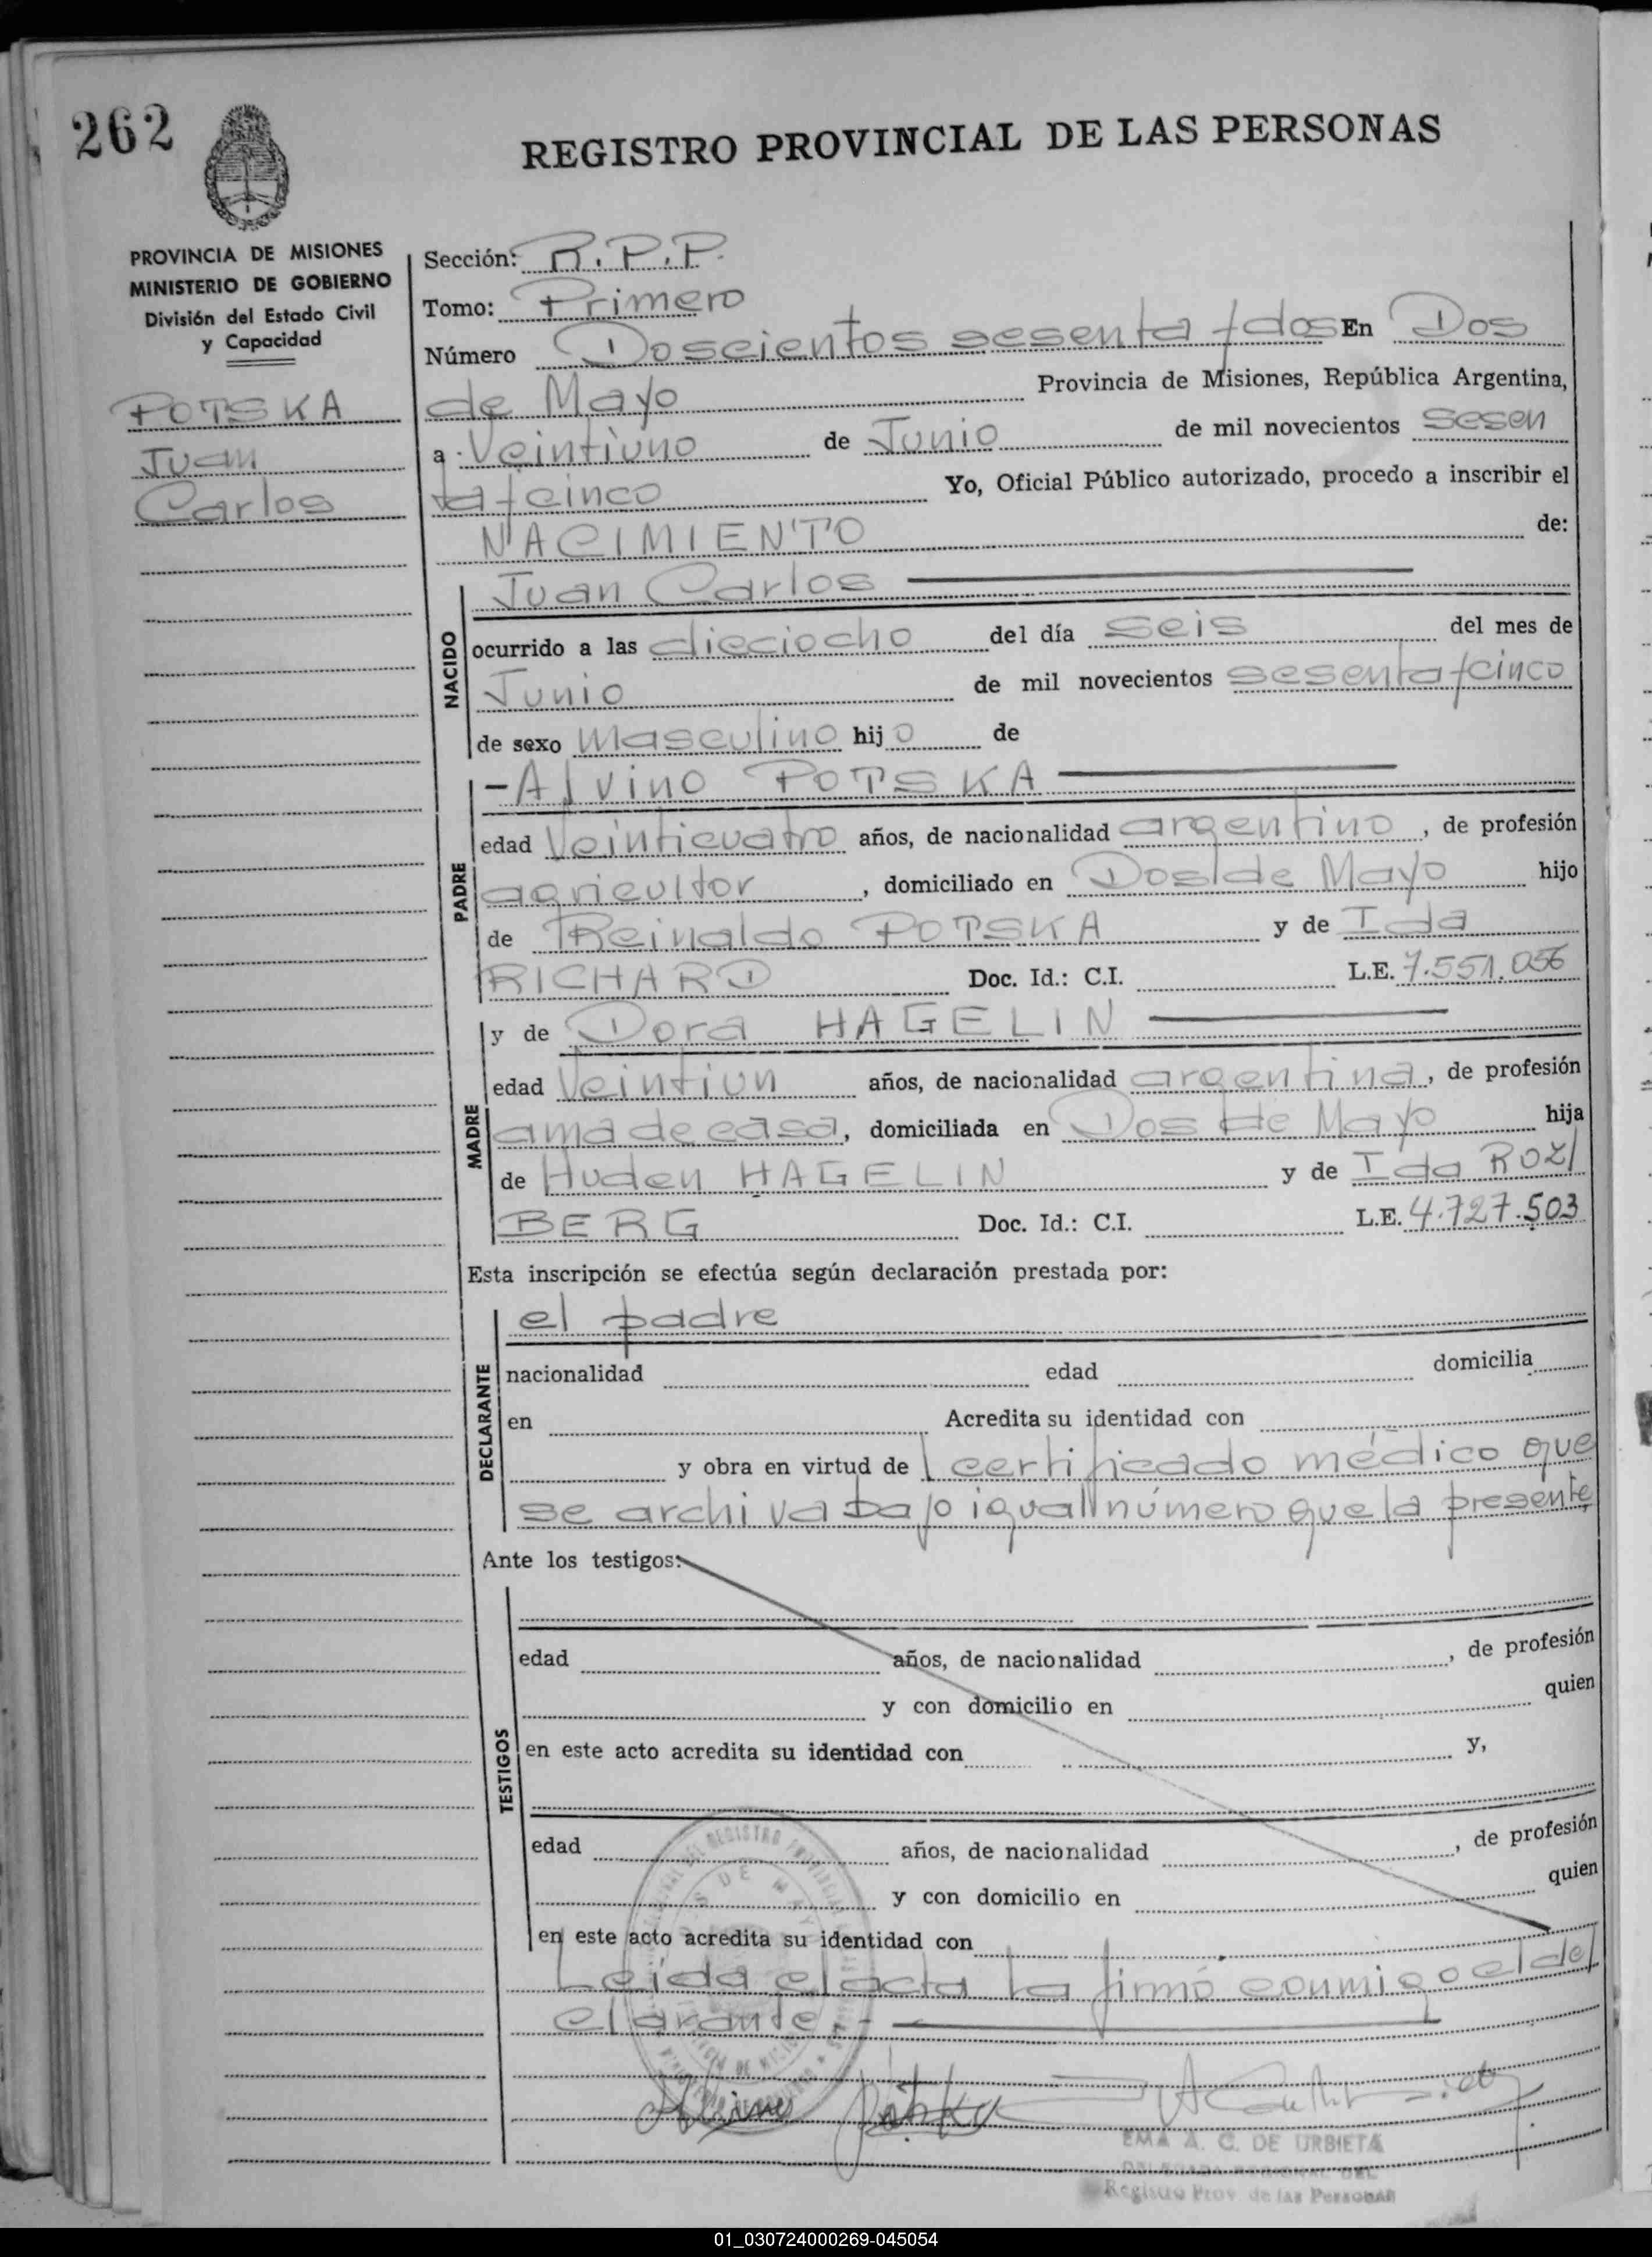 262
REGISTRO PROVINCIAL DE LAS PERSONAS
PROVINCIA DE MISIONES
MINISTERIO DE GOBIERNO
División del Estado Civil
y Capacidad
POTSKA
Juan
Carlos
Sección: R.P.P.
Tomo: Primero
Número Doscientos sesenta y dos En Dos
de Mayo Provincia de Misiones, República Argentina,
a Veintiuno de Junio de mil novecientos sesen
ta y cinco Yo, Oficial Público autorizado, procedo a inscribir el
NACIMIENTO de:
NACIDO
Juan Carlos
ocurrido a las dieciocho del día seis del mes de
Junio de mil novecientos sesenta y cinco
de sexo masculino hijo de
PADRE
-Alvino POTSKA
edad Veinticuatro años, de nacionalidad argentino, de profesión
agricultor, domiciliado en Dos de Mayo hijo
de Reinaldo POTSKA y de Ida
RICHARD Doc. Id.: C.I. L.E. 7.551.056
MADRE
y de Dora HAGELIN
edad Veintiun años, de nacionalidad argentina, de profesión
ama de casa, domiciliada en Dos de Mayo hija
de Huden HAGELIN y de Ida ROZI
BERG Doc. Id.: C.I. L.E. 4.727.503
Esta inscripción se efectúa según declaración prestada por:
DECLARANTE
el padre
nacionalidad edad domicilia
en Acredita su identidad con
y obra en virtud del certificado médico que
se archiva bajo igual número que la presente
Ante los testigos:
TESTIGOS
edad años, de nacionalidad , de profesión
y con domicilio en quien
en este acto acredita su identidad con y,
edad años, de nacionalidad , de profesión
y con domicilio en quien
en este acto acredita su identidad con
Leída el acta la firmó conmigo el de
clarante.-
EMA A. C. DE URBIETA
DELEGADA REGIONAL DEL
Registro Prov. de las Personas
01_030724000269-045054